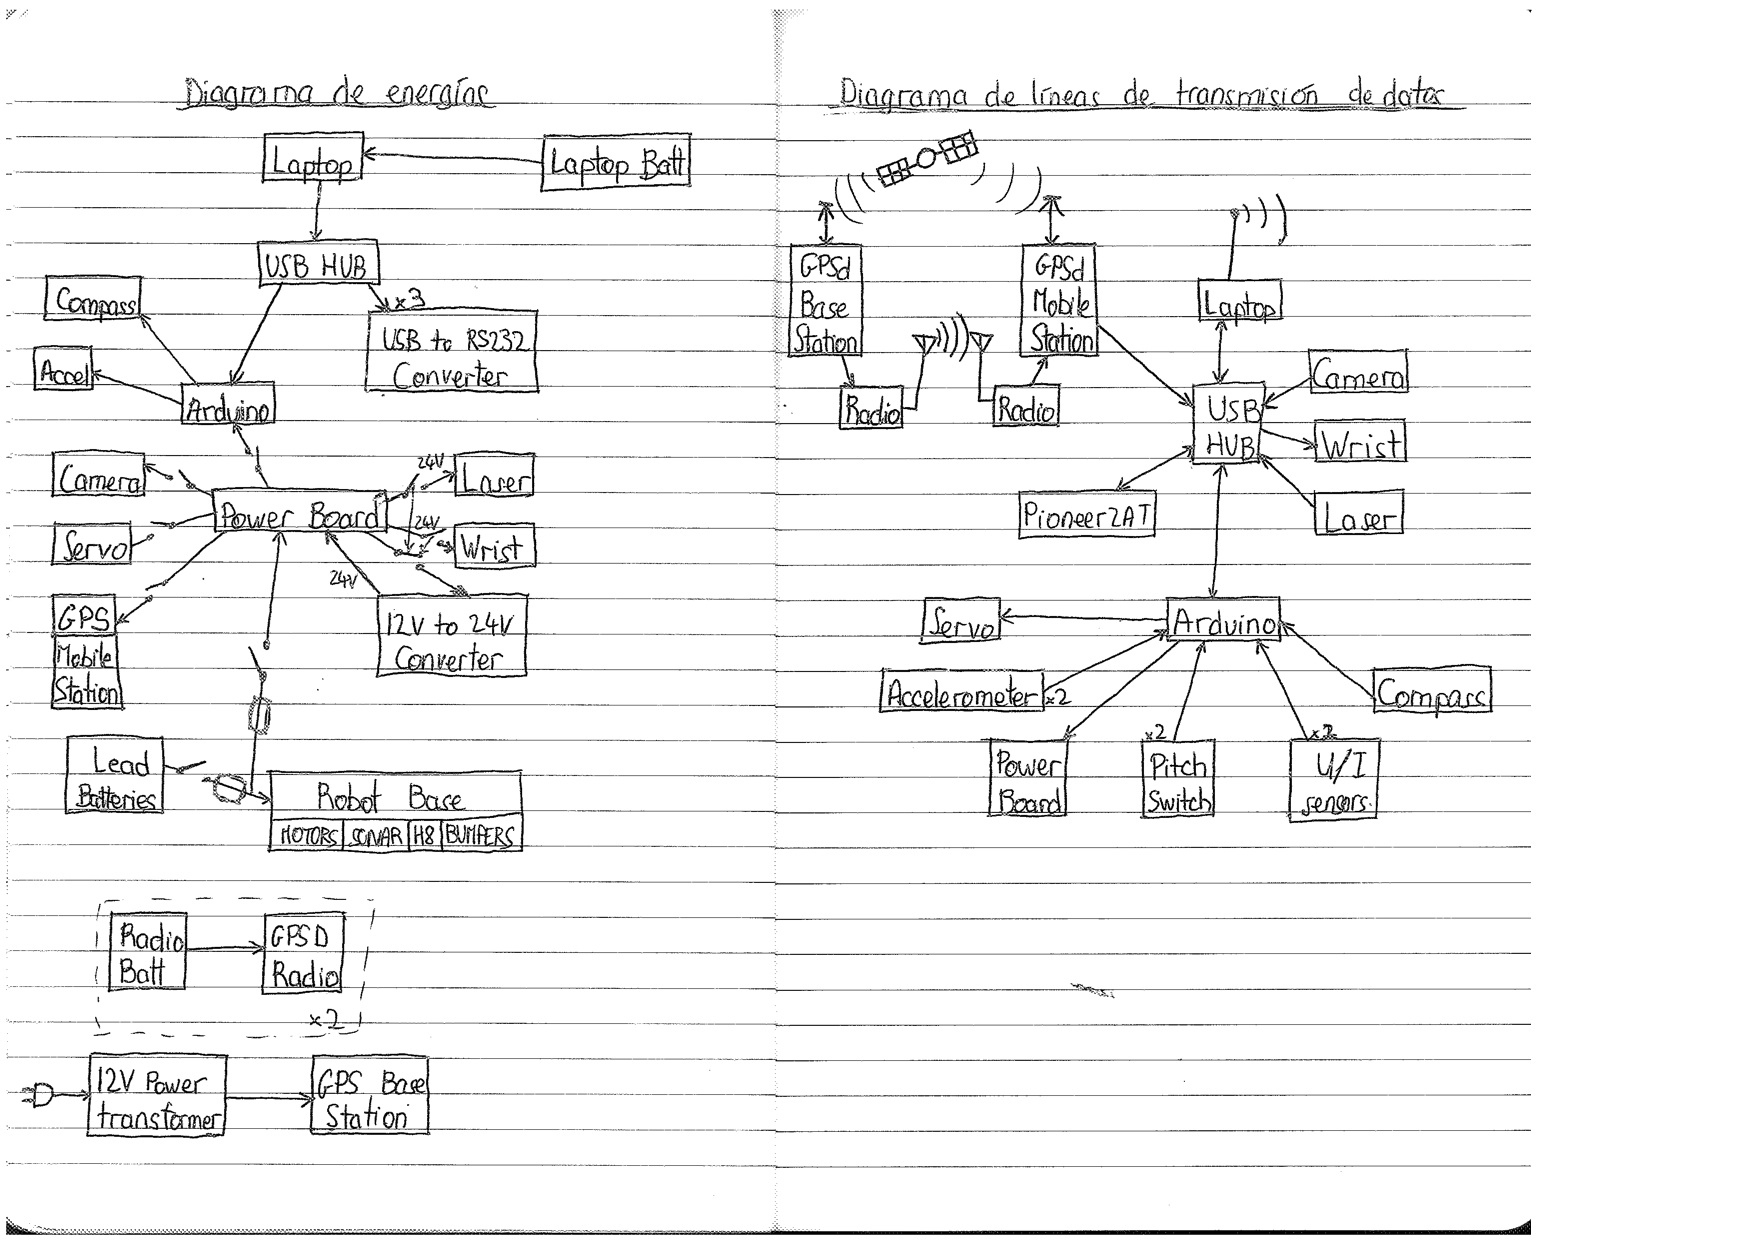 Diagrama de energías
Laptop
Laptop Batt
USB HUB
x3
Compass
USB to RS232
Converter
Accel
Arduino
Camera
24V
Laser
Power Board
24V
Servo
Wrist
24V
GPS
Mobile
Station
12V to 24V
Converter
Lead
Batteries
Robot Base
MOTORS SONAR H8 BUMPERS
Radio
Batt
GPSD
Radio
x2
12V Power
transformer
GPS Base
Station
Diagrama de líneas de transmisión de datos
GPSd
Base
Station
GPSd
Mobile
Station
Laptop
Radio
Radio
Camera
USB
HUB
Wrist
Pioneer2AT
Laser
Servo
Arduino
Accelerometer x2
Compass
Power
Board
x2
Pitch
Switch
x2
U/I
sensors.